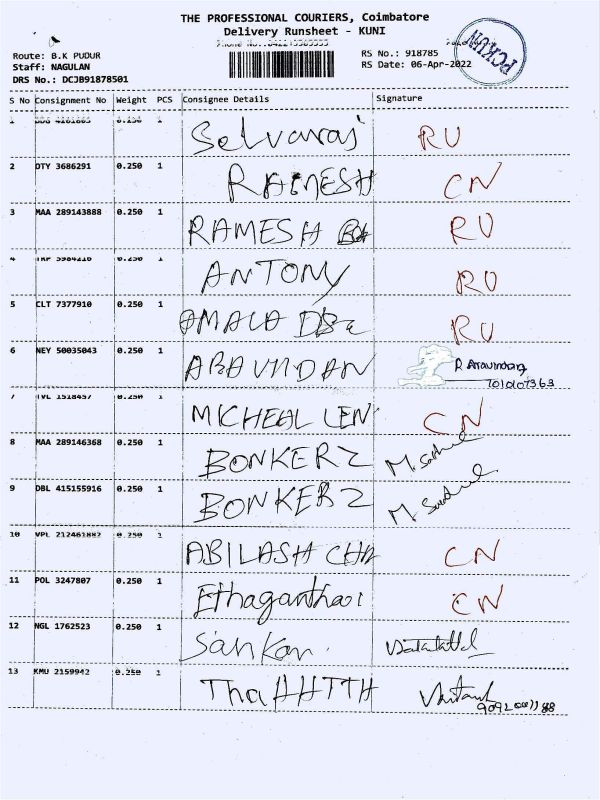 THE PROFESSIONAL COURIERS, Coimbatore
Delivery Runsheet - KUNI
Route: B.K PUDUR
Staff: NAGULAN
DRS No.: DCJB91878501
RS No.: 918785
RS Date: 06-Apr-2022
PCKUN
S No Consignment No Weight PCS Consignee Details Signature
1 0.250 1 Selvaraj RU
2 DTY 3686291 0.250 1 RAMESH CN
3 MAA 289143888 0.250 1 RAMESH RU
4 TRP 5984216 0.250 1 ANTONY RU
5 CLT 7377910 0.250 1 AMALA RU
6 NEY 50035043 0.250 1 ARAVINDAN R Aravindan
7 TVL 1518457 0.250 1 MICHEAL LEN CN
8 MAA 289146368 0.250 1 BONKERZ
9 DBL 415155916 0.250 1 BONKERZ
10 VPL 212461882 0.250 1 ABILASH CHN CN
11 POL 3247807 0.250 1 CN
12 NGL 1762523 0.250 1 Sankar
13 KMU 2159942 0.250 1